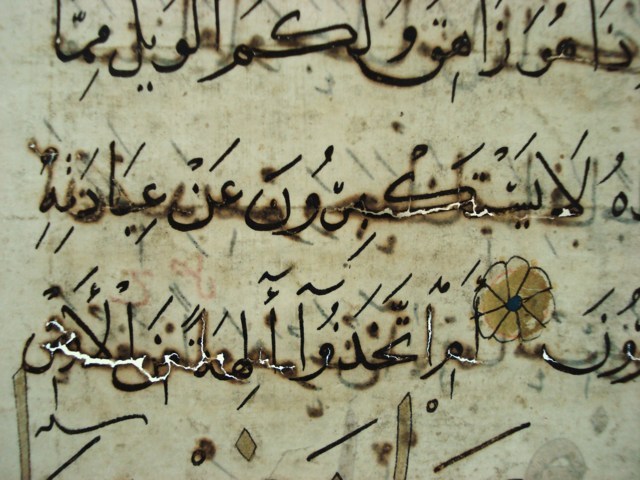 هُوَ زَاهِقٌ وَلَكُمُ الْوَيْلُ مِمَّا
لَا يَسْتَكْبِرُونَ عَنْ عِبَادَتِهِ
أَمِ اتَّخَذُوا آلِهَةً مِنَ الْأَرْضِ